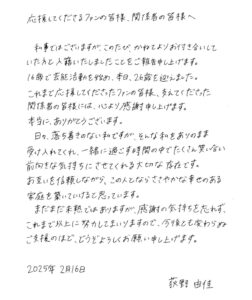 応援してくださるファンの皆様、関係者の皆様へ
私事ではございますが、このたび、かねてよりお付き合いして
いた方と入籍いたしましたことをご報告申し上げます。
16歳で芸能活動を始め、本日、26歳を迎えました。
これまで応援してくださったファンの皆様、支えてくださった
関係者の皆様には、心より感謝申し上げます。
本当に、ありがとうございます。
日々、落ち着きのない私ですが、そんな私をありのまま
受け入れてくれ、一緒に過ごす時間の中でたくさん笑い合い
前向きな気持ちにさせてくれる大切な存在です。
お互いを信頼しながら、この人とならささやかな幸せのある
家庭を築いていけると思っています。
まだまだ未熟ではありますが、感謝の気持ちを忘れず、
これまで以上に努力してまいりますので、今後とも変わらぬ
ご支援のほど、どうぞよろしくお願い申し上げます。
2025年2月16日
荻野由佳